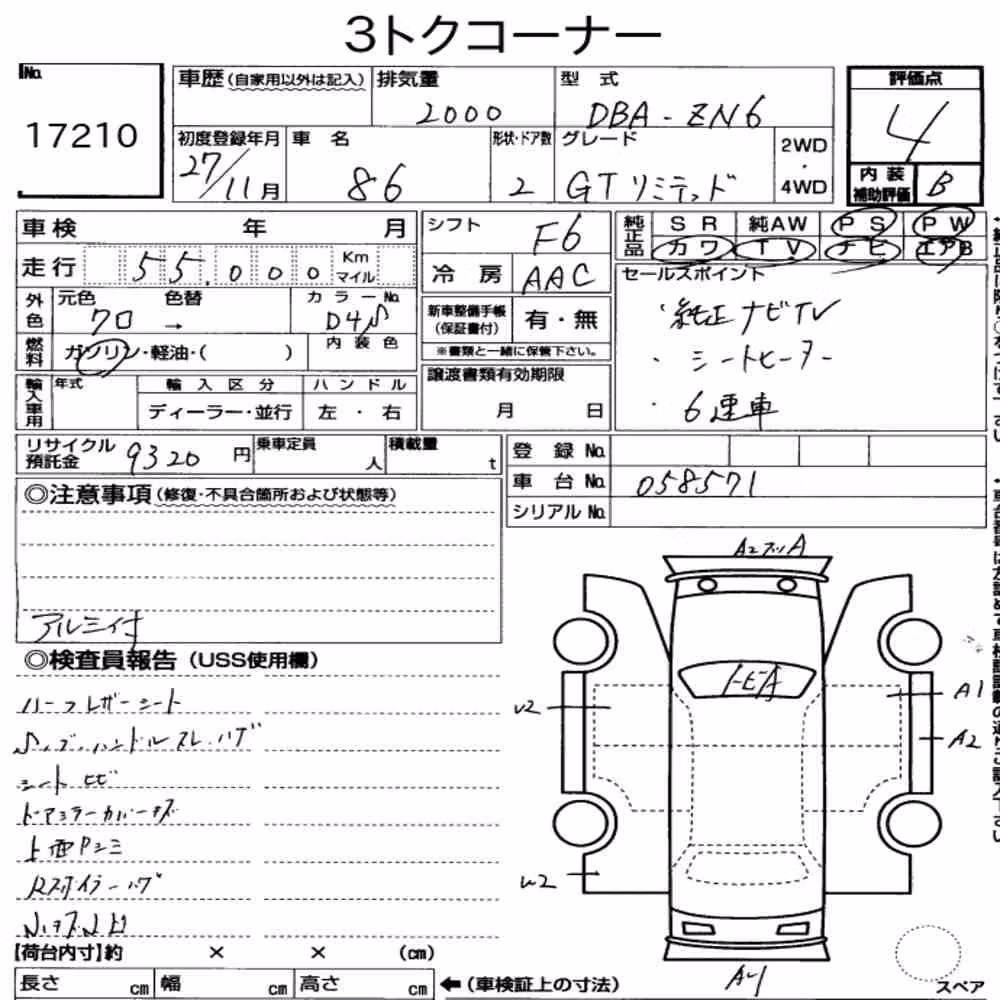 3トクコーナー
No. 17210
車歴(自家用以外は記入) 排気量 2000 型式 DBA-ZN6
評価点 4
初度登録年月 27/11月 車名 86 形状・ドア数 2 グレード GTリミテッド 2WD・4WD
内装補助評価 B
車検 年 月 シフト F6
純正品 SR 純AW PS PW
カワ TV ナビ エアB
走行 55,000 Km マイル 冷房 AAC
外色 元色 クロ → 色替 カラーNo. D4S
燃料 ガソリン・軽油・( ) 内装色
新車整備手帳(保証書付) 有・無
※書類と一緒に保管下さい。
セールスポイント
・純正ナビTV
・シートヒーター
・6速車
輸入車用 年式 輸入区分 ディーラー・並行 ハンドル 左・右
譲渡書類有効期限 月 日
リサイクル預託金 9320円 乗車定員 人 積載量 t
登録No.
車台No. 058571
シリアルNo.
◎注意事項(修復・不具合箇所および状態等)
アルミ付
◎検査員報告(USS使用欄)
ハーフレザーシート
ハンドルスレ・ハゲ
シートヒビ
ドアミラーカバーキズ
上面Pシミ
A2
A
トビA
U2
A1
A2
U2
A1
【荷台内寸】約 × × (cm)
長さ cm 幅 cm 高さ cm ←(車検証上の寸法)
スペア